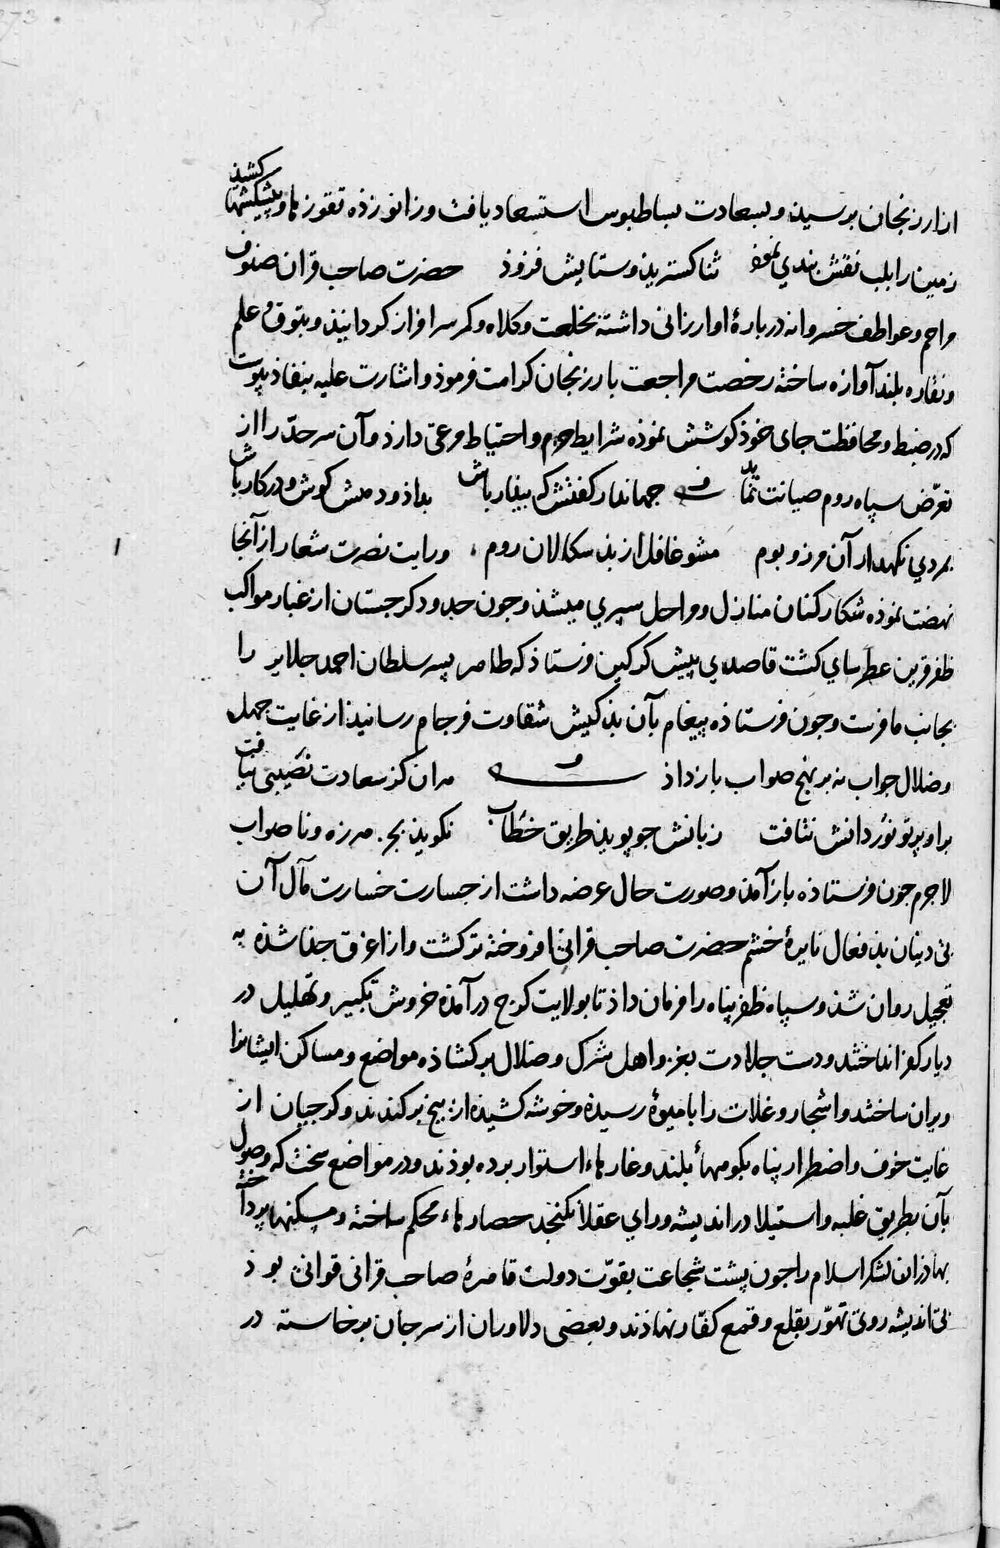 از ارزنجان برسید و بسعادت بساط بوس استسعاد یافت و زانو زده تقوزها و پیشکشها کشید
زمین را بلب نقش بندی نمود ثنا گسترید و ستایش فزود حضرت صاحب قران صنوف
مراحم و عواطف خسروانه در بارهٔ او ارزانی داشته بخلعت و کلاه و کمر سرافراز کردانید و بتوق و علم
و نقاره بلند آوازه ساخته رخصت مراجعت بارزنجان کرامت فرموذ و اشارت علیه بنفاذ پیوست
که در ضبط و محافظت جای خوذ کوشش نموذه شرایط حزم و احتیاط مرعی دارذ و آن سرحدّ را از
تعرّض سپاه روم صیانت نماید جهاندار کفتش که بیدار باش بداذ و دهش کوش و در کار باش
بمردی نکهدار آن مرز و بوم مشو غافل از بذ سکالان روم و رایت نصرت شعار از آنجا
نهضت نموذه شکار کنان منازل و مراحل سپری میشذ و جون حدود کرجستان از غبار مواکب
ظفر قرین عطر سای کشت قاصدی پیش کرکین فرستاذ که طاهر پسر سلطان احمد جلایر را
بجانب ما فرست و جون فرستاذه پیغام بآن بذ کیش شقاوت فرجام رسانید از غایت جهل
و ضلال جواب نه بر نهج صواب باز داذ هر ان کز سعادت نصیبی نیافت
برو پرتو نور دانش نتافت زبانش جو پوید طریق خطاب نکوید بجز هرزه و نا صواب
لاجرم جون فرستاذه باز آمد و صورت حال عرضه داشت از جسارت خسارت مآل آن
بی دینان بذ فعال نایرهٔ خشم حضرت صاحب قرانی افروخته تر کشت و از اغرق جذا شذه به
تعجیل روان شذ و سپاه ظفر پناه را فرمان داذ تا بولایت کرج در آمذه خروش تکبیر و تهلیل در
دیار کفر انداختند و دست جلادت بغزو اهل شرک و ضلال بر کشاذه مواضع و مساکن ایشانرا
ویران ساختند و اشجار و غلات را با میوهٔ رسیده و خوشه کشیده از بیخ بر کندند و کرجیان از
غایت خوف و اضطرار پناه بکوههاء بلند و غارهاء استوار برده بوذند و در مواضع سخت که وصول
بآن بطریق غلبه و استیلا در اندیشه و رای عقلا نکنجد حصارهاء محکم ساخته و مسکنها پرداخته
بهاذران لشکر اسلام را جون پشت شجاعت بقوّت دولت قاهرهٔ صاحب قرانی قوانی بوذ
بی اندیشه روی تهوّر بقلع و قمع کفّار نهاذند و بعضی دلاوران از سر جان برخاسته در